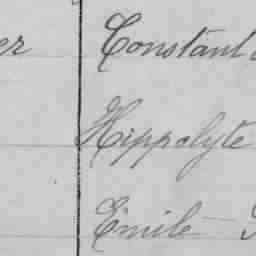 er Constant
Hippolyte
Emile